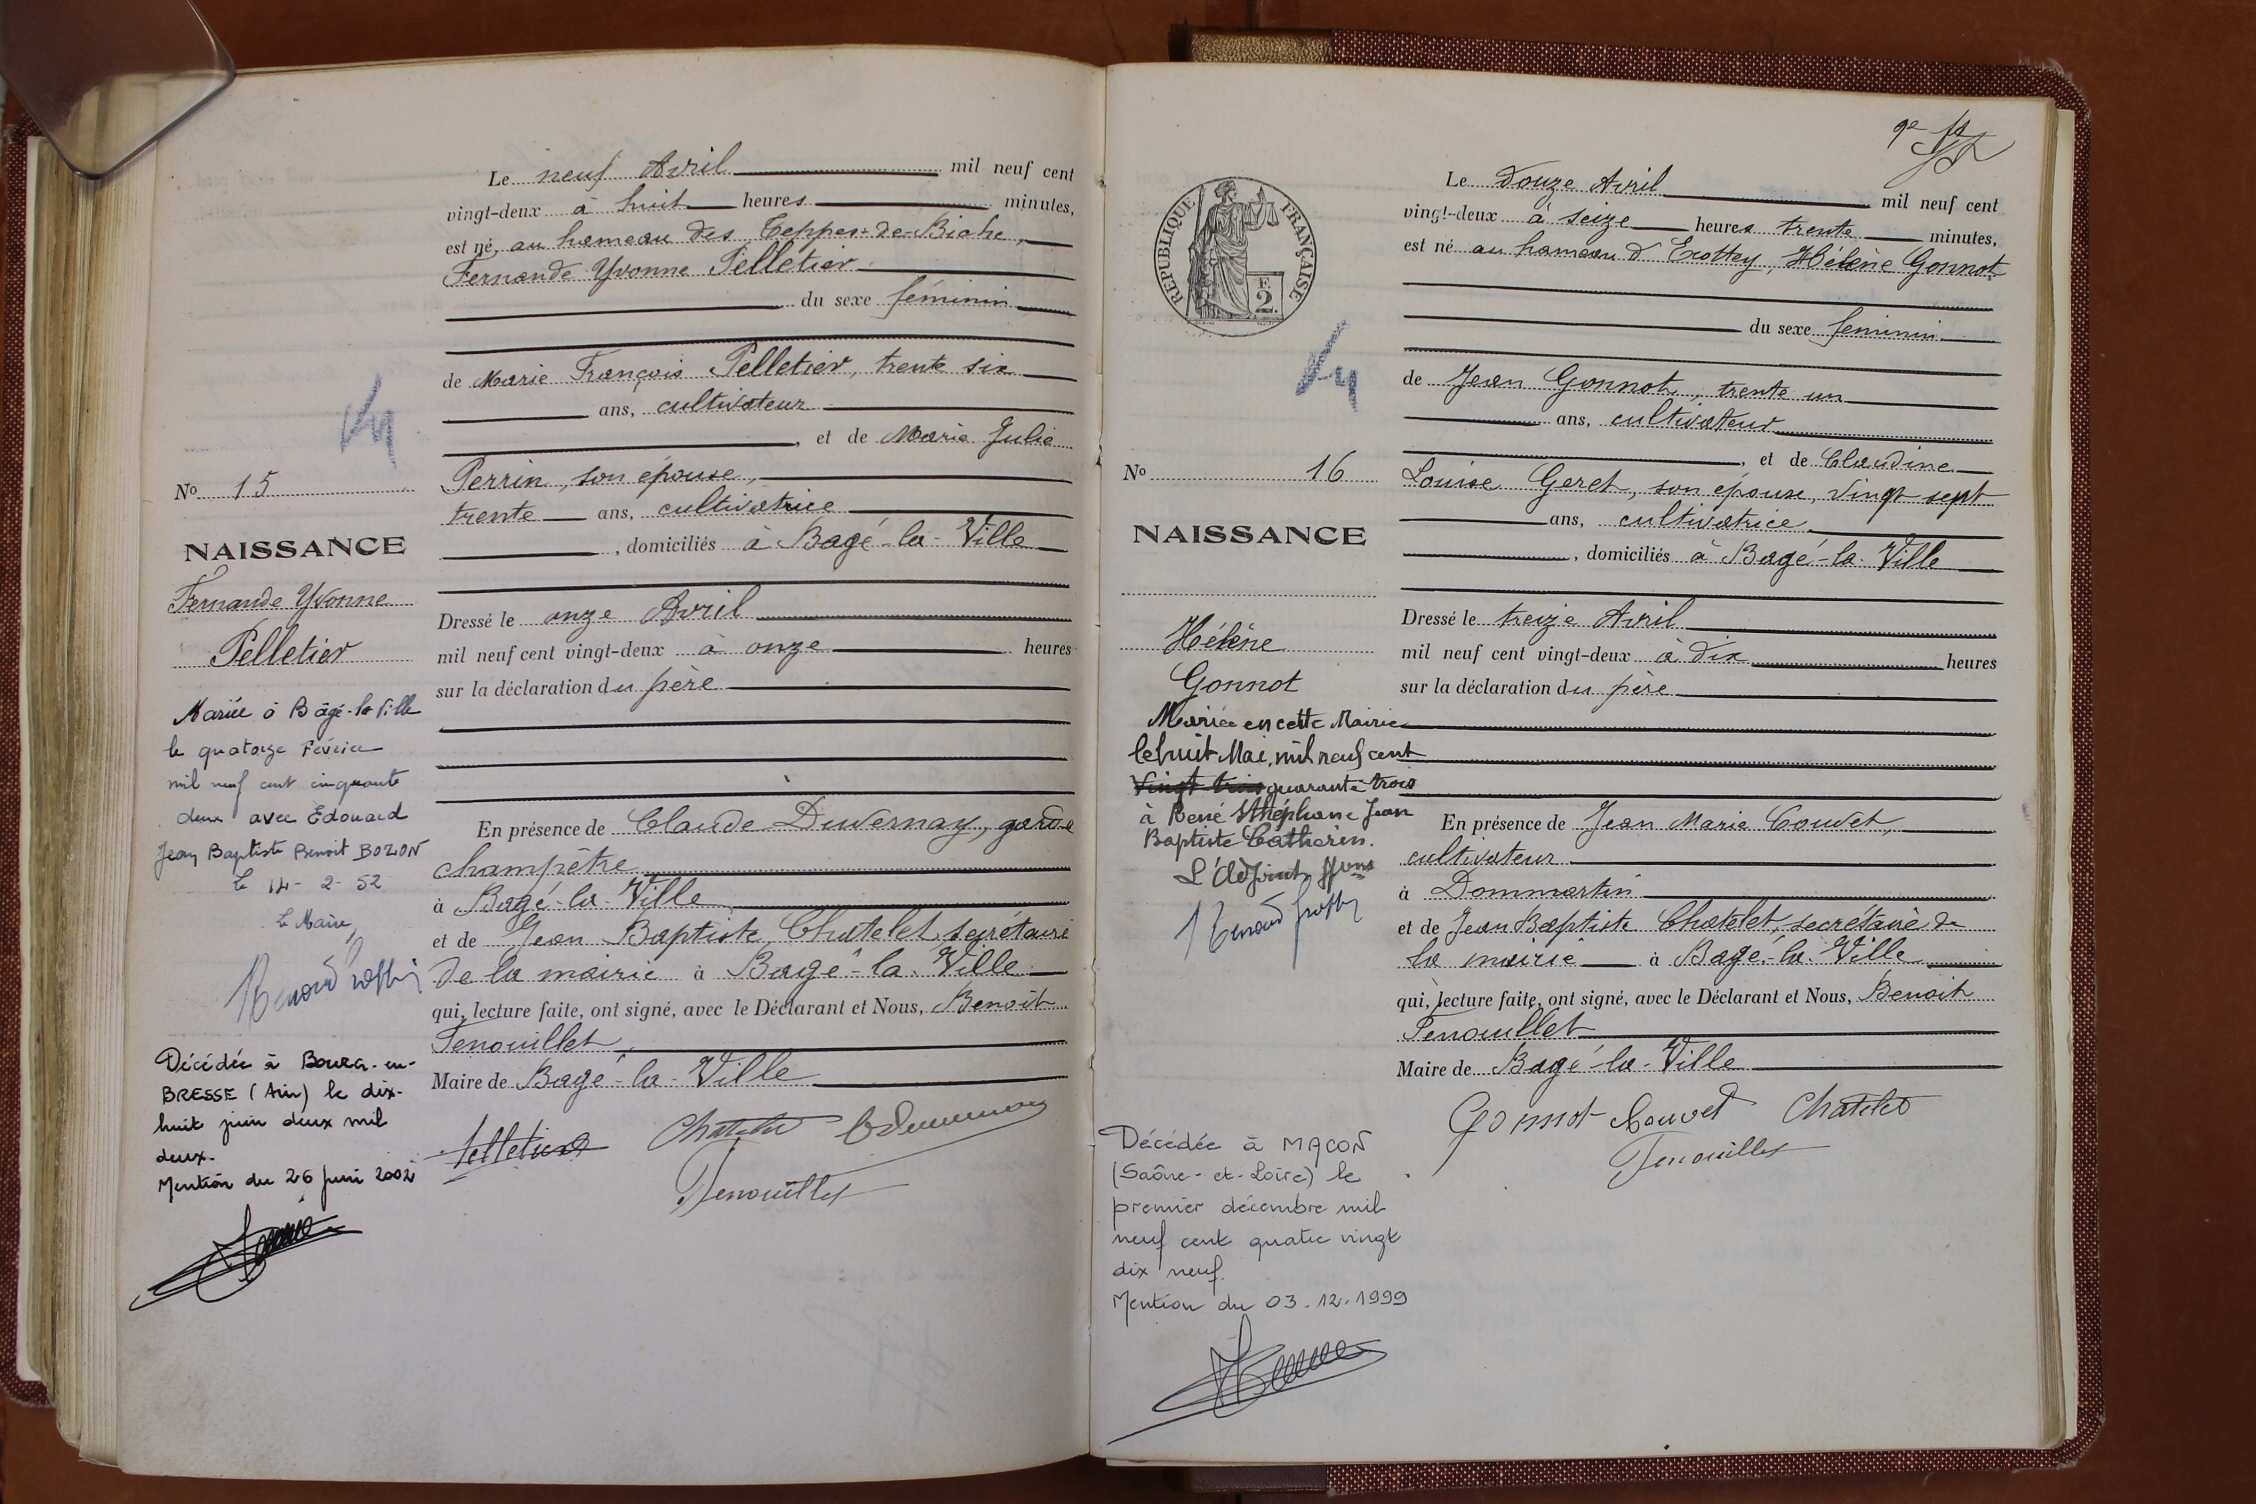 Le neuf Avril mil neuf cent
vingt-deux à huit heures minutes,
est né, au hameau des Teppes-de-Biche,
Fernande Yvonne Pelletier
du sexe féminin
de Marie François Pelletier, trente six
ans, cultivateur
, et de Marie Julie
Perrin, son épouse,
trente ans, cultivatrice
, domiciliés à Bagé-la-Ville
Dressé le onze Avril
mil neuf cent vingt-deux à onze heures
sur la déclaration du père
En présence de Claude Duvernay, garde
champêtre
à Bagé-la-Ville
et de Jean Baptiste Chatelet, secrétaire
de la mairie à Bagé-la-Ville
qui, lecture faite, ont signé, avec le Déclarant et Nous, Benoit
Fenouillet
Maire de Bagé-la-Ville
Pelletier Chatelet
Fenouillet
No 15
NAISSANCE
Fernande Yvonne
Pelletier
Mariée à Bâgé-la-Ville
le quatorze Février
mil neuf cent cinquante
deux avec Edouard
Jean Baptiste Benoit BOZON
le 14-2-52
Le Maire,
Décédée à BOURG-en-
BRESSE (Ain) le dix-
huit juin deux mil
deux.
Mention du 26 juin 2002
RÉPUBLIQUE FRANÇAISE
F.
2.
Le douze Avril mil neuf cent
vingt-deux à seize heures trente minutes,
est né au hameau d'Exottey, Hélène Gonnot
du sexe feminin
de Jean Gonnot, trente un
ans, cultivateur
, et de Claudine
Louise Geret, son épouse, vingt sept
ans, cultivatrice
, domiciliés à Bagé-la-Ville
Dressé le treize Avril
mil neuf cent vingt-deux à dix heures
sur la déclaration du père
En présence de Jean Marie Couvet,
cultivateur
à Dommartin
et de Jean Baptiste Chatelet, secrétaire de
la mairie à Bagé-la-Ville
qui, lecture faite, ont signé, avec le Déclarant et Nous, Benoit
Fenouillet
Maire de Bagé-la-Ville
Gonnot Couvet Chatelet
Fenouillet
No 16
NAISSANCE
Hélène
Gonnot
Mariée en cette Mairie
le huit Mai, mil neuf cent
vingt trois quarante trois
à René Sthéphane Jean
Baptiste Catherin.
L'Adjoint
Décédée à MACON
(Saône-et-Loire) le
premier décembre mil
neuf cent quatre vingt
dix neuf.
Mention du 03.12.1999